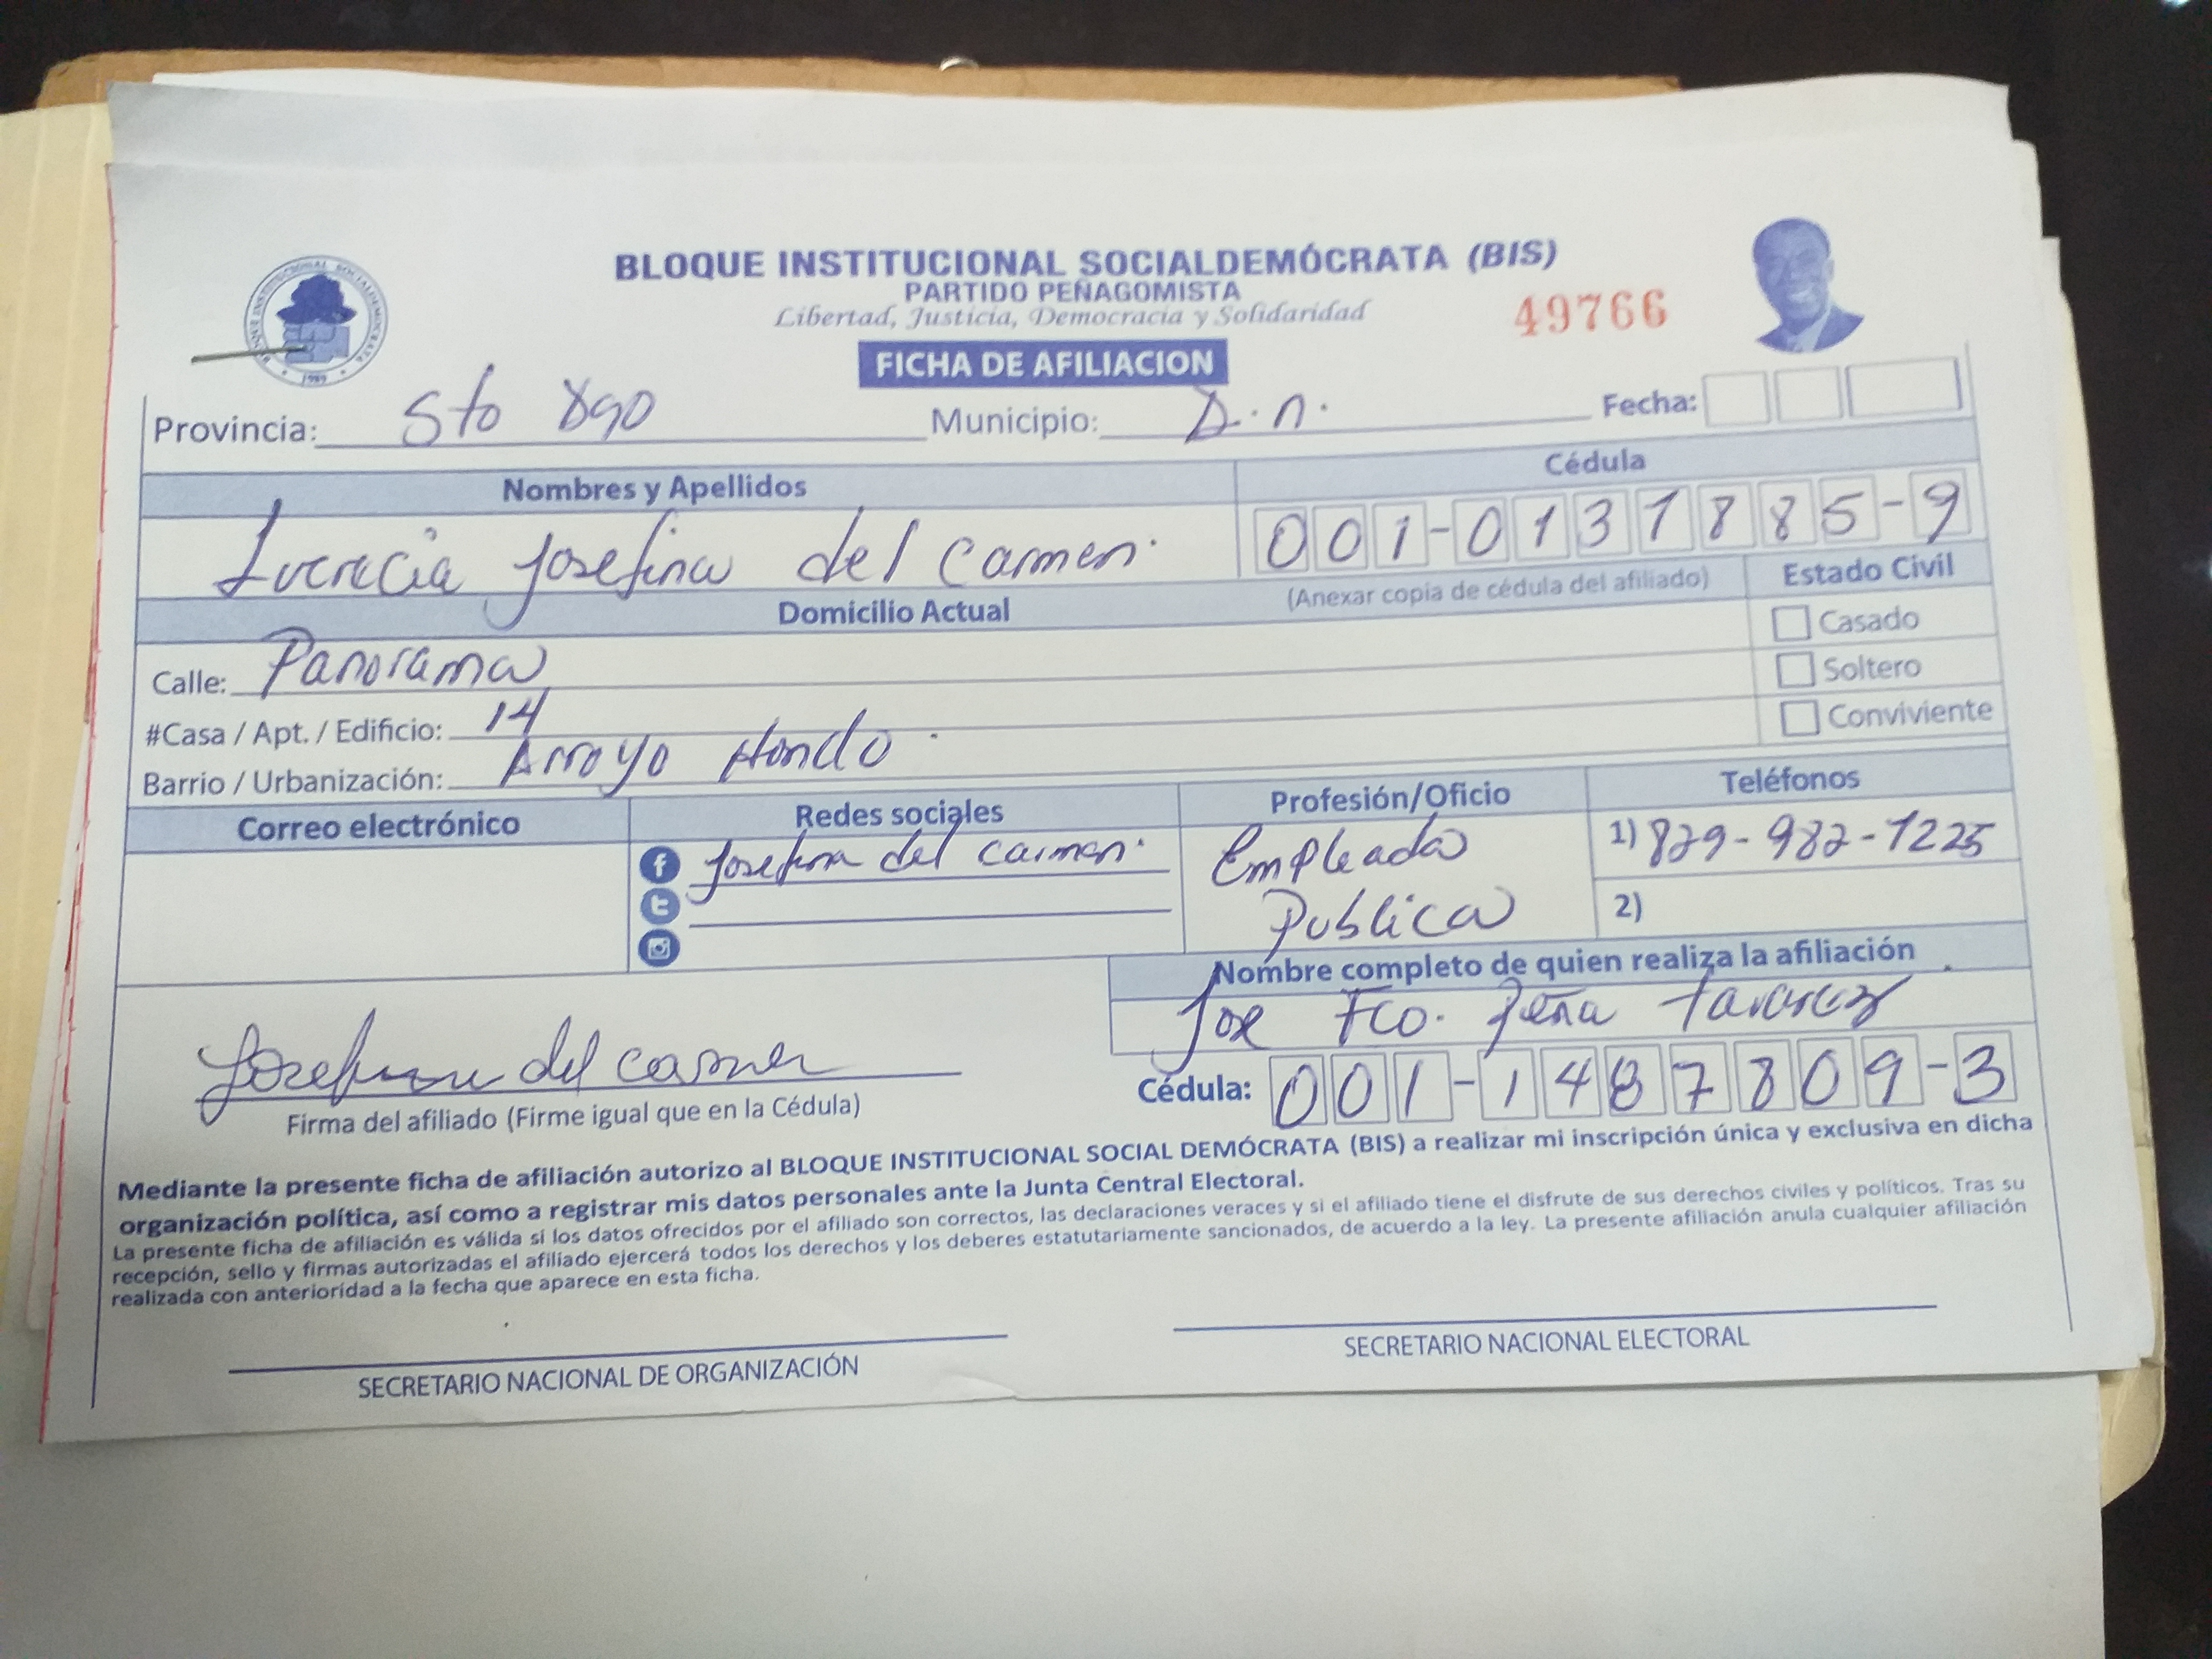 BLOQUE INSTITUCIONAL SOCIALDEMÓCRATA (BIS)
PARTIDO PEÑAGOMISTA
Libertad, Justicia, Democracia y Solidaridad
49766
FICHA DE AFILIACION
Provincia: Sto Dgo Municipio: D.n. Fecha:
Nombres y Apellidos Cédula
Lucrecia Josefina del Carmen. 001-0131885-9
(Anexar copia de cédula del afiliado) Estado Civil
Domicilio Actual
Casado
Calle: Panorama
Soltero
#Casa / Apt. / Edificio: 14
Conviviente
Barrio / Urbanización: Arroyo Hondo.
Correo electrónico Redes sociales Profesión/Oficio Teléfonos
Josefina del Carmen. Empleada 1) 829-982-1225
Publica 2)
Nombre completo de quien realiza la afiliación
Jose Fco. Peña Tavarez
Josefina del Carmen
Cédula: 001-1487809-3
Firma del afiliado (Firme igual que en la Cédula)
Mediante la presente ficha de afiliación autorizo al BLOQUE INSTITUCIONAL SOCIAL DEMÓCRATA (BIS) a realizar mi inscripción única y exclusiva en dicha
organización política, así como a registrar mis datos personales ante la Junta Central Electoral.
La presente ficha de afiliación es válida si los datos ofrecidos por el afiliado son correctos, las declaraciones veraces y si el afiliado tiene el disfrute de sus derechos civiles y políticos. Tras su
recepción, sello y firmas autorizadas el afiliado ejercerá todos los derechos y los deberes estatutariamente sancionados, de acuerdo a la ley. La presente afiliación anula cualquier afiliación
realizada con anterioridad a la fecha que aparece en esta ficha.
SECRETARIO NACIONAL DE ORGANIZACIÓN SECRETARIO NACIONAL ELECTORAL